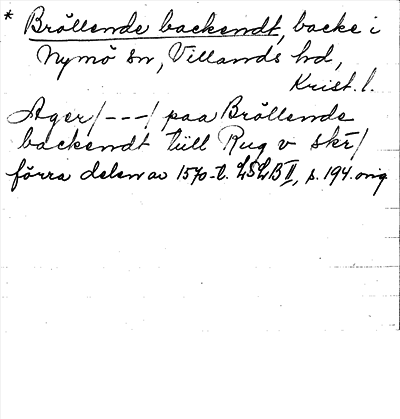 * Bröllende backendt, backe i
Nymö sn, Villands hd,
Krist. l.
Ager/---/ paa Bröllende
backendt tüll Rug v skr/
förra delen av 1570-t. LSLB II, s. 194. orig